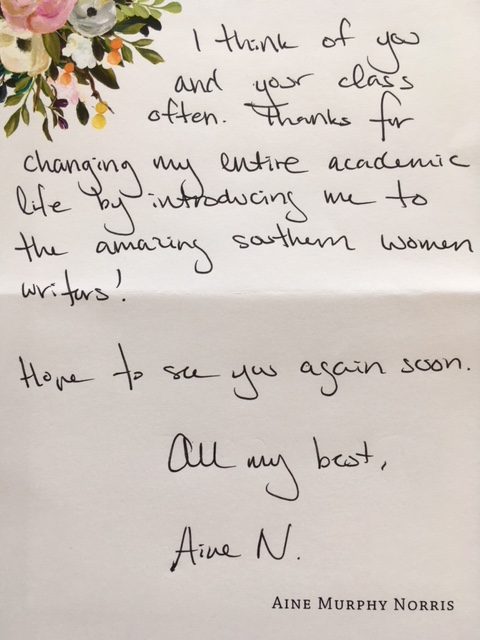 I think of you
and your class
often. Thanks for
changing my entire academic
life by introducing me to
the amazing southern women
writers!
Hope to see you again soon.
All my best,
Aine N.
AINE MURPHY NORRIS